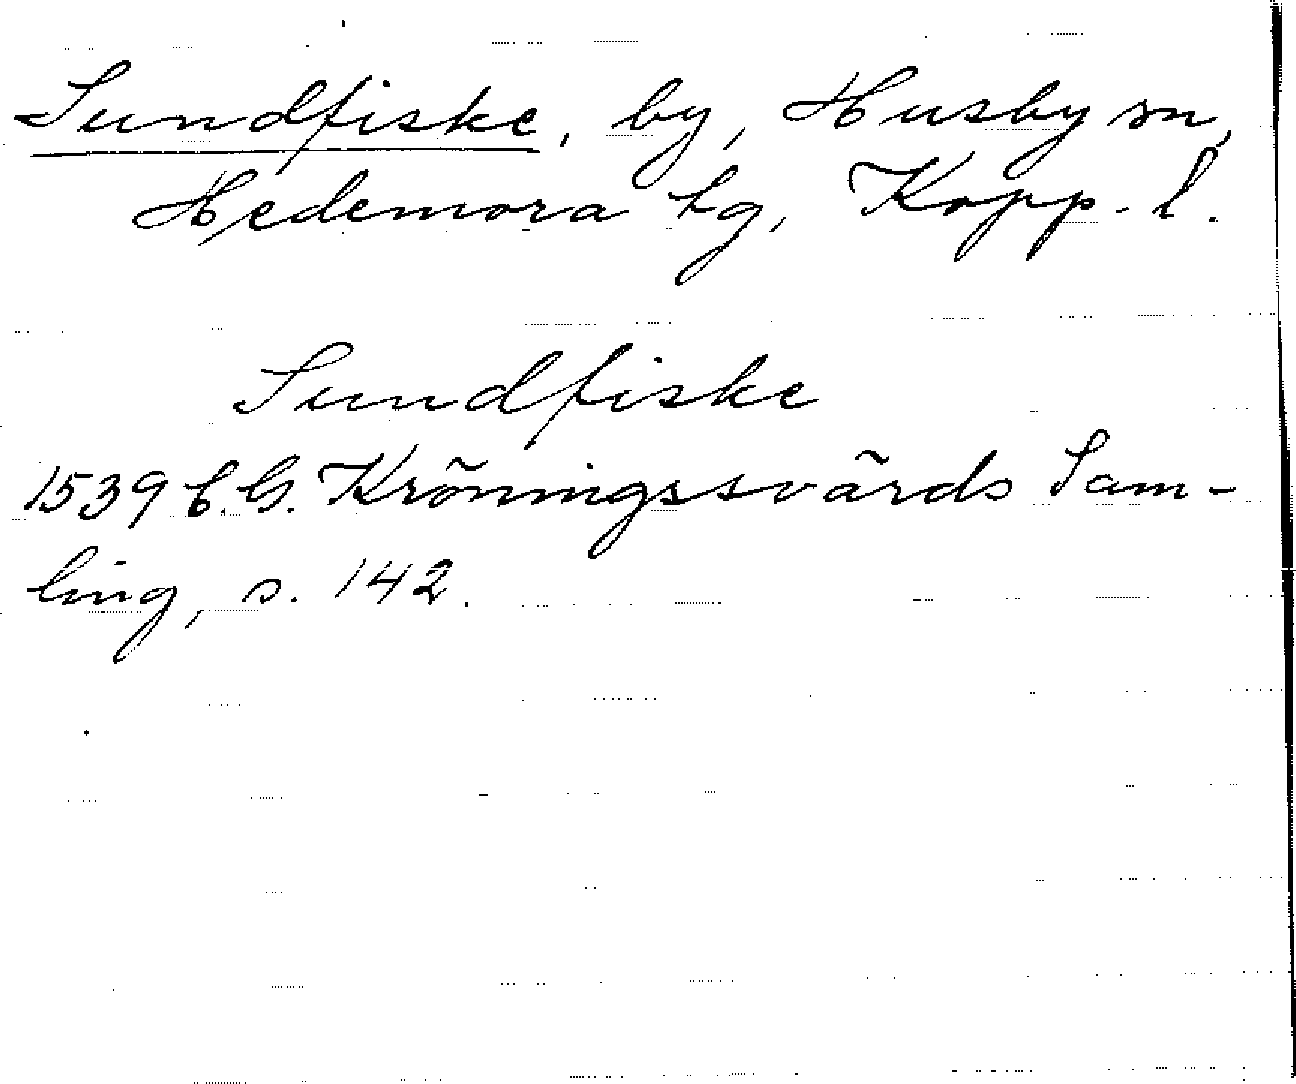 Sundfiske, by, Husby sn,
Hedemora tg, Kopp. l.
Sundfiske
1539 C. G. Kröningssvärds Sam-
ling, s. 142.